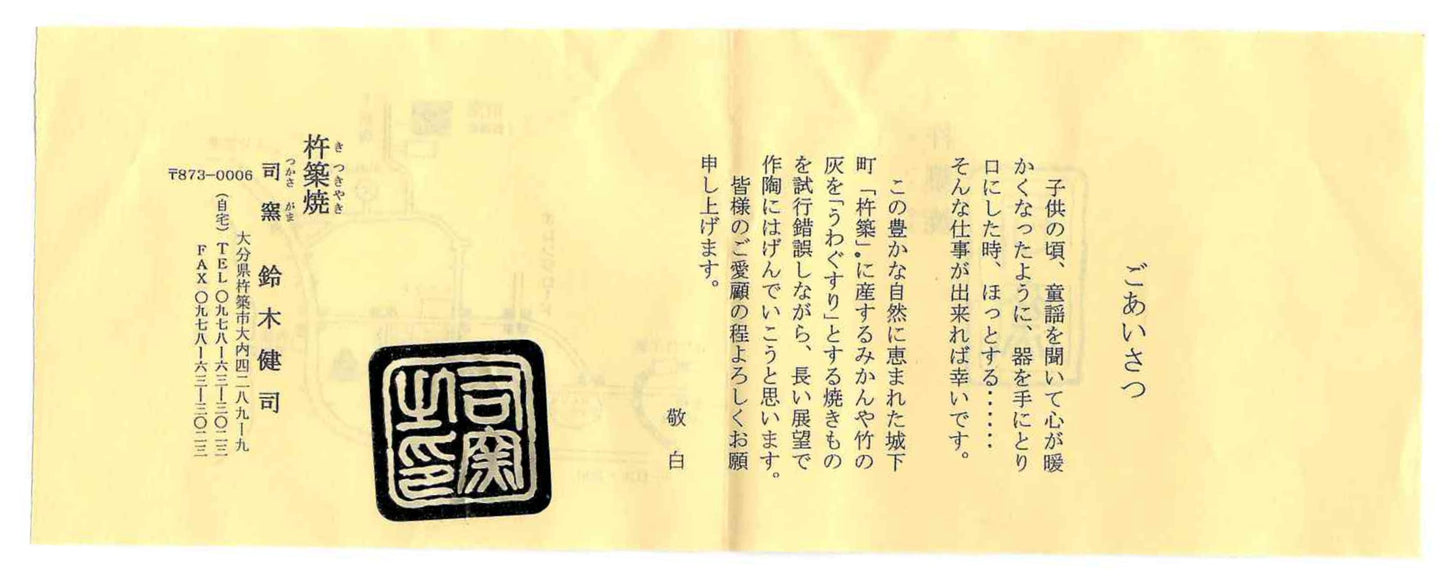 ごあいさつ
子供の頃、童謡を聞いて心が暖
かくなったように、器を手にとり
口にした時、ほっとする・・・・・・
そんな仕事が出来れば幸いです。
この豊かな自然に恵まれた城下
町「杵築」に産するみかんや竹の
灰を「うわぐすり」とする焼きもの
を試行錯誤しながら、長い展望で
作陶にはげんでいこうと思います。
皆様のご愛顧の程よろしくお願
申し上げます。
敬白
司窯之印
きつきやき
杵築焼
つかさがま
司窯 鈴木健司
〒873-0006
大分県杵築市大内四二八九ー九
(自宅)TEL〇九七八ー六三ー三〇二三
FAX〇九七八ー六三ー三〇二三